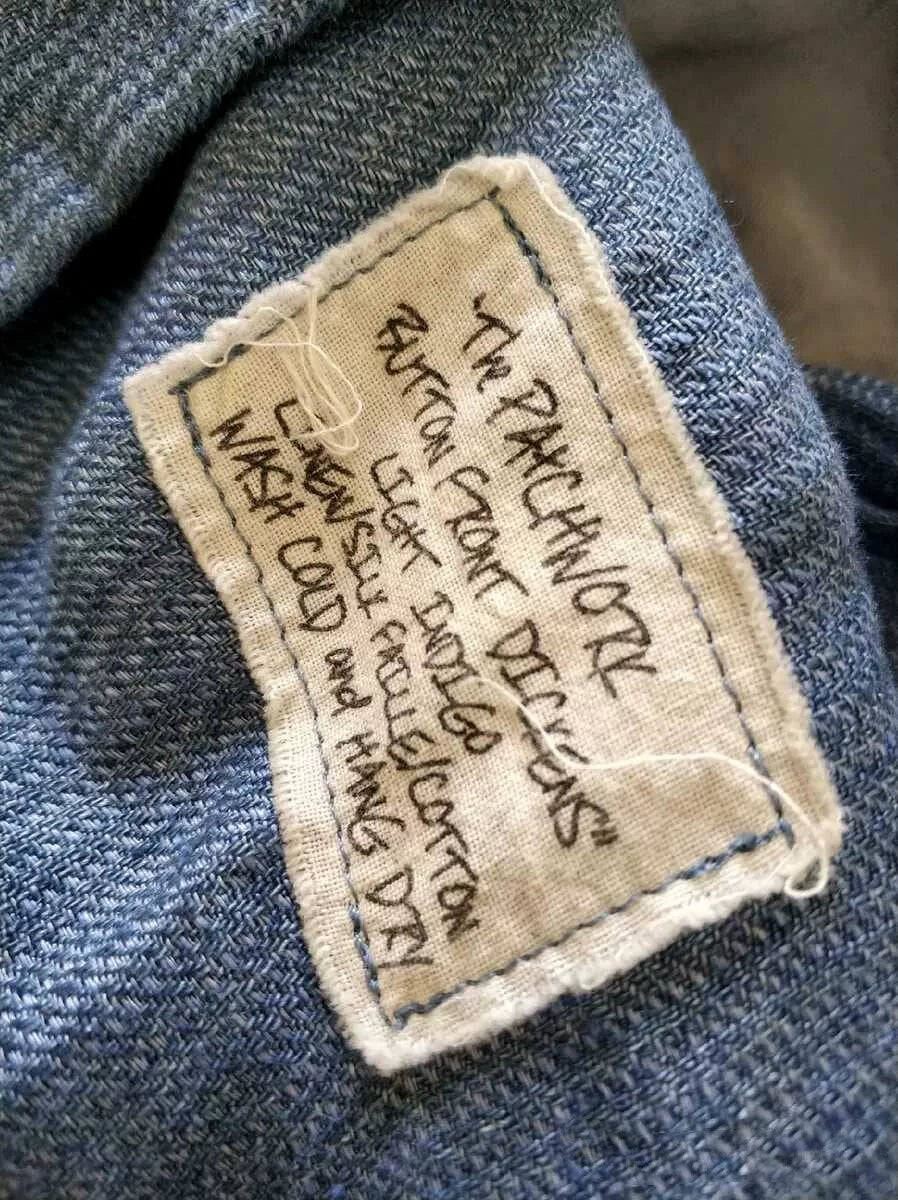 "The PATCHWORK
BUTTON FRONT DICKENS"
LIGHT INDIGO
LINEN/SILK FAILLE/COTTON
WASH COLD and HANG DRY